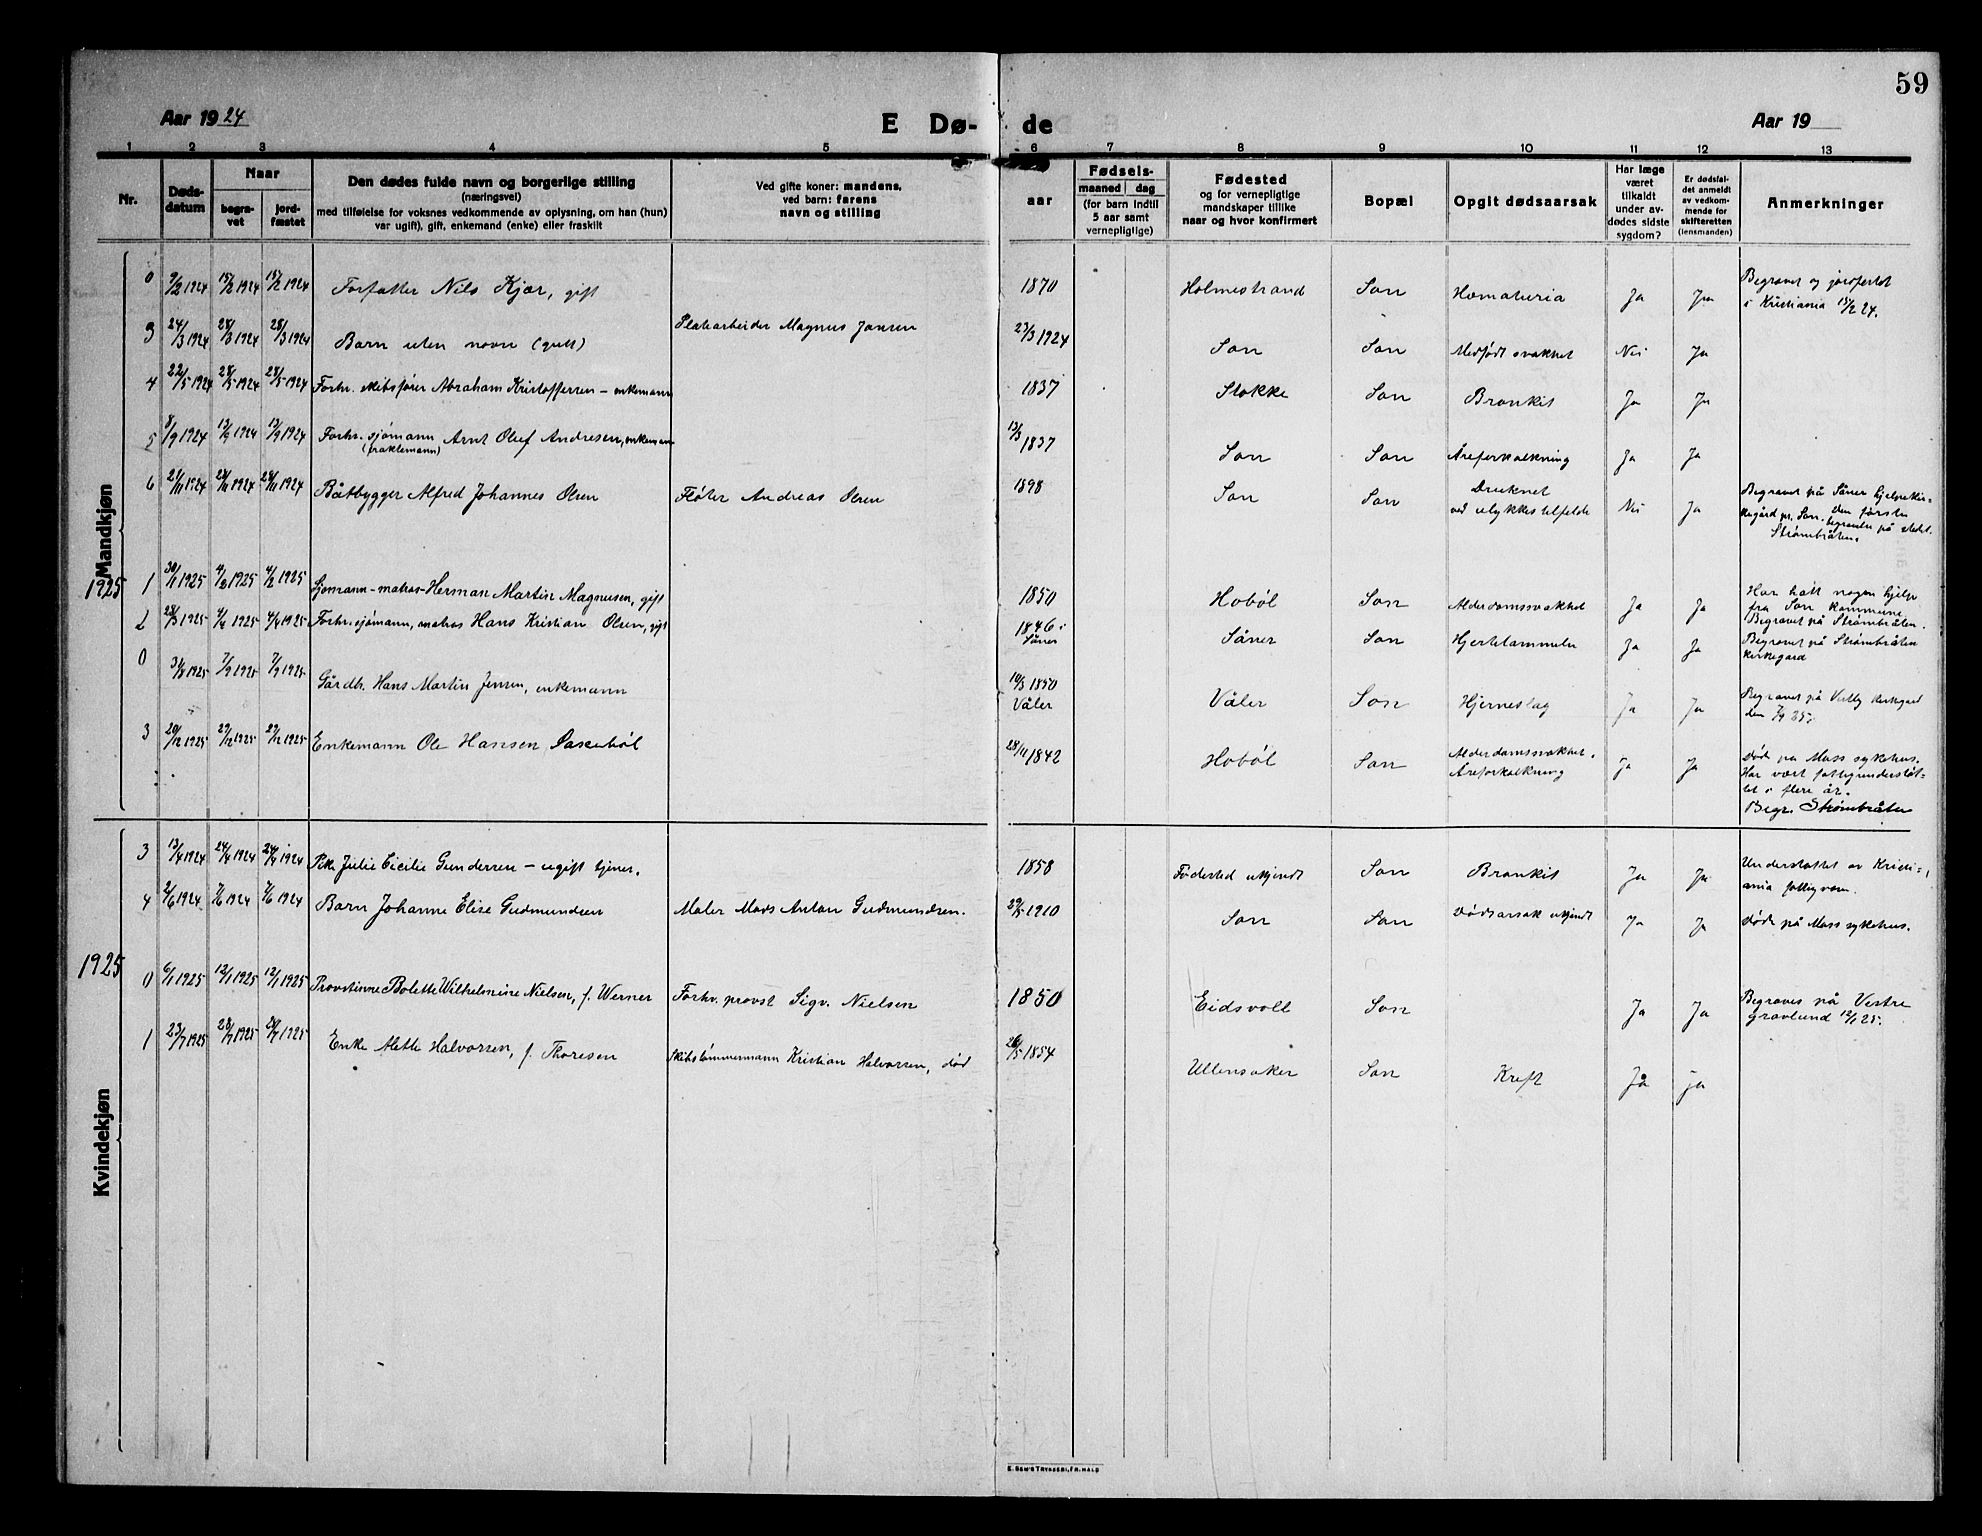 59
Aar 1924 E Dø- de Aar 19
1 2 3 4 5 6 7 8 9 10 11 12 13
Nr.
Døds-
datum
Naar
begra-
vet
jord-
fæstet
Den dødes fulde navn og borgerlige stilling
(næringsvei)
med tilføielse for voksnes vedkommende av oplysning, om han (hun)
var ugift), gift, enkemand (enke) eller fraskilt
Ved gifte koner: mandens,
ved barn: farens
navn og stilling
aar
Fødsels-
maaned dag
(for barn indtil
5 aar samt
vernepligtige)
Fødested
og for vernepligtige
mandskaper tillike
naar og hvor konfirmert
Bopæl
Opgit dødsaarsak
Har læge
været
tilkaldt
under av-
dødes sidste
sygdom?
Er dødsfal-
det anmeldt
av vedkom-
mende for
skifteretten
(lensmanden)
Anmerkninger
Mandkjøn
0 9/2 1924 15/2 1924 15/2 1924 Forfatter Nils Kjær, gift 1870 Holmestrand Son Hæmaturia Ja Ja Begravet og jordfestet
i Kristiania 15/2 24.
3 24/3 1924 28/3 1924 28/3 1924 Barn uten navn (gutt) Platearbeider Magnus Jansen 23/3 1924 Son Son Medfødt svakhet Nei Ja
4 22/5 1924 28/5 1924 28/5 1924 Forhv. skibsfører Abraham Kristoffersen - enkemann 1837 Stokke Son Bronkit Ja Ja
5 8/9 1924 13/9 1924 13/9 1924 Forhv. sjømann Arnt Oluf Andresen, enkemann 13/3 1837 Son Son Åreforkalkning Ja Ja
(fraktemann)
6 21/11 1924 28/11 1924 28/11 1924 Båtbygger Alfred Johannes Olsen Fløter Andreas Olsen 1898 Son Son Druknet
ved ulykkestilfelde Nei Ja Begravet på Såner hjelpekir-
kegård pr. Son. Den første
begravelse på stedet.
Strømbråten.
1925
1 30/1 1925 4/2 1925 4/2 1925 Sjømann - matros - Herman Martin Magnusen, gift 1850 Hobøl Son Alderdomssvakhet Ja Ja Har hatt nogen hjelp
fra Son kommune
Begravet på Strømbråten.
2 28/3 1925 4/4 1925 4/4 1925 Forhv. sjømann, matros Hans Kristian Olsen, gift 1846 i
Såner Såner Son Hjertelammelse Ja Ja Begravet på Strømbråten
kirkegård
0 31/8 1925 7/9 1925 7/9 1925 Gårdbr. Hans Martin Jensen, enkemann 10/3 1850
Våler Våler Son Hjerneslag Ja Ja Begravet på Vestby kirkegård
den 7/9 25.
3 20/12 1925 27/12 1925 27/12 1925 Enkemann Ole Hansen 28/11 1842 Hobøl Son Alderdomssvakhet.
Åreforkalkning Ja Ja Døde på Moss sykehus.
Har vært fattigunderstøt-
tet i flere år.
Begr. Strømbråten
Kvindekjøn
3 13/4 1924 24/4 1924 24/4 1924 Pike Julie Cicilie Gundersen - ugift tjener. 1858 Fødested ukjendt Son Bronkit Ja Ja Understøttet av Kristi-
ania fattigvesen.
4 2/6 1924 7/6 1924 7/6 1924 Barn Johanne Elise Gudmundsen Maler Mads Anton Gudmundsen. 29/5 1910 Son Son Dødsårsak ukjendt Ja Ja Døde på Moss sykehus.
1925
0 6/1 1925 12/1 1925 12/1 1925 Provstinne Bolette Wilhelmine Nielsen, f. Werner Forhv. provst Sigv. Nielsen 1850 Eidsvoll Son Ja Ja Begraves på Vestre
gravlund 12/1 25.
1 23/7 1925 28/7 1925 28/7 1925 Enke Alette Halvorsen, f. Thoresen Skibstømmermann Kristian Halvorsen, død 26/5 1854 Ullensaker Son Kreft Ja ja
E. SEM'S TRYKKERI, FR.HALD